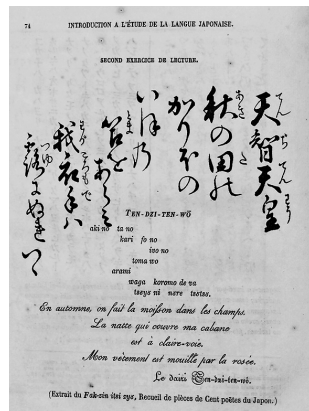 74 INTRODUCTION A L'ÉTUDE DE LA LANGUE JAPONAISE.
SECOND EXERCICE DE LECTURE.
天智天皇
てんちてんわう
秋の田の
あき た
かりほの
いほの
苫をあらミ
とま
我衣手ハ
わがころもで
露にぬれつゝ
つゆ
TEN-DZI-TEN-WŌ
aki no ta no
kari fo no
ivo no
toma wo
arami
waga koromo de va
tseyu ni nure tsutsu.
En automne, on fait la moisson dans les champs.
La natte qui couvre ma cabane
est à claire-voie.
Mon vêtement est mouillé par la rosée.
Le daïri Ten-dzi-ten-wō.
(Extrait du Fak-nin itsi syu, Recueil de pièces de Cent poëtes du Japon.)